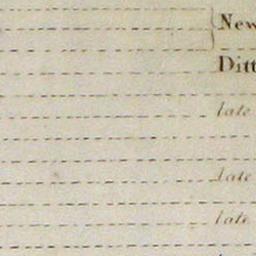 New
Ditt
late
late
late